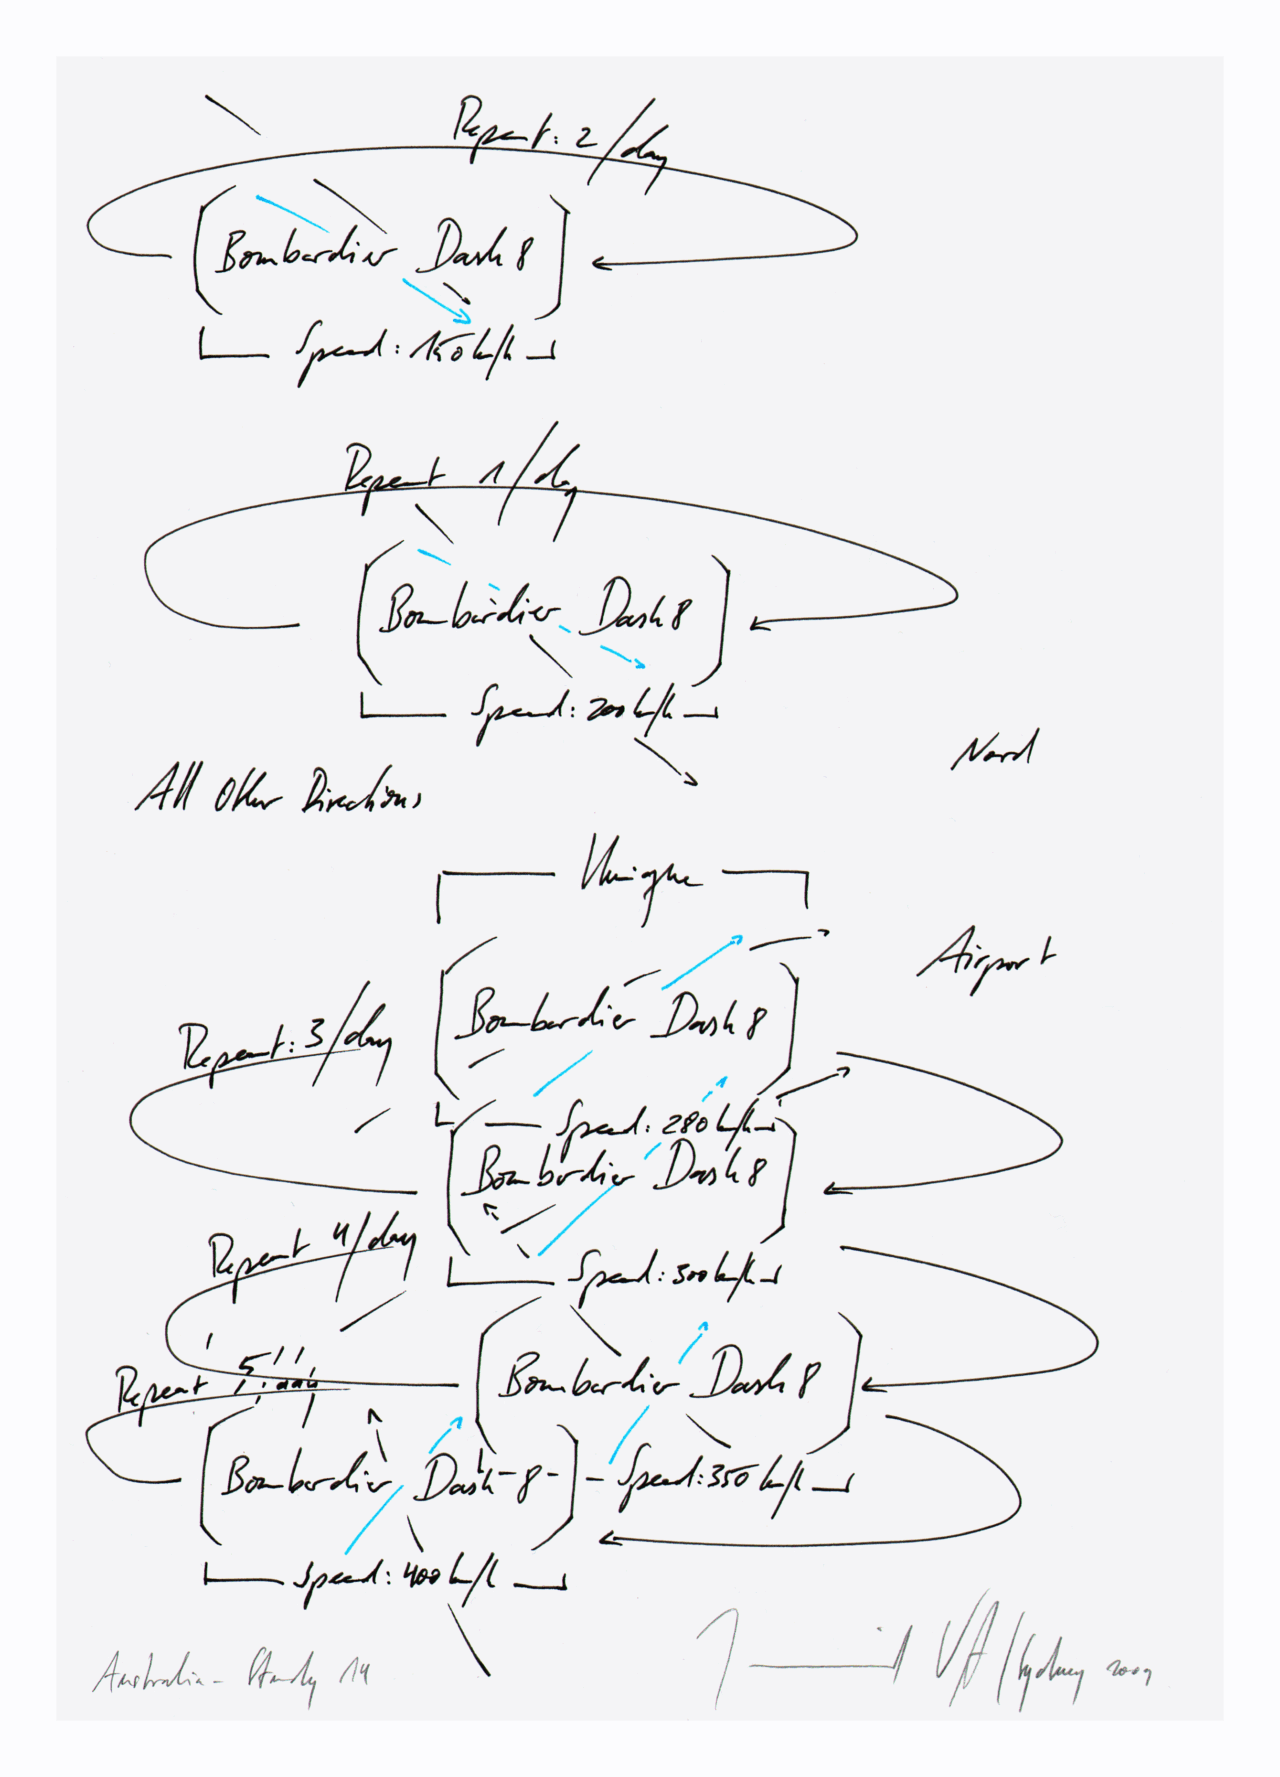 Repeat: 2/day
Bombardier Dash 8
Speed: 150 km/h
Repeat 1/day
Bombardier Dash 8
Speed: 200 km/h
Nord
All Other Directions
Unique
Airport
Bombardier Dash 8
Repeat: 3/day
Speed: 280 km/h
Bombardier Dash 8
Repeat 4/day
Speed: 300 km/h
Bombardier Dash 8
Repeat 5
Bombardier Dash 8
Speed: 350 km/h
Speed: 400 km/h
Australia - Study 14
/Sydney 2009